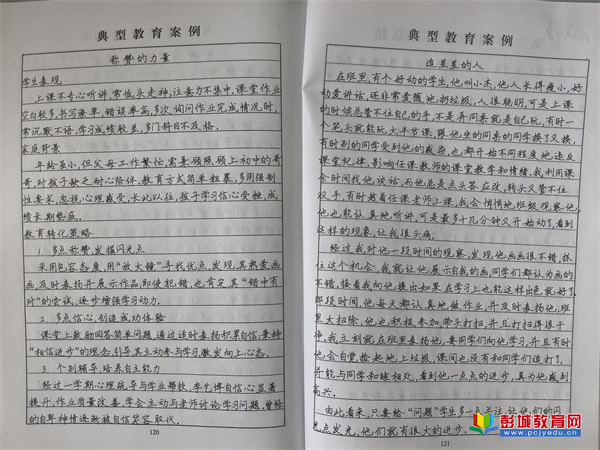 典型教育案例
称赞的力量
学生表现
上课不专心听讲，常低头走神，注意力不集中，课堂作业
空白较多，书写潦草，错误率高，多次询问作业完成情况时，
常沉默不语，学习成绩较差，多门科目不及格。
家庭背景
年龄虽小，但父母工作繁忙，需兼顾照顾上初中的哥
哥，对孩子缺乏耐心陪伴，教育方式简单粗暴，多用强制
性要求，忽视心理感受，长此以往，孩子学习信心受挫，成
绩长期垫底。
教育转化策略
1 多点称赞，发掘闪光点
采用包容态度，用“放大镜”寻找优点，发现其热爱画
画及时表扬并展示作品，即使犯错，也肯定其“错中有
对”的尝试，逐步增强学习动力。
2. 多点信心，创造成功体验
课堂上鼓励回答简单问题，通过适时表扬积累自信，秉持
“相信进步”的理念，引导其主动参与学习激发向上心态。
3. 个别辅导，培养自主能力
经过一学期心理疏导与学业帮扶，李艺博自信心显著
提升，作业质量改善，学会主动与老师讨论学习问题，曾经
的自卑神情逐渐被自信笑容取代。
120
典型教育案例
追星星的人
在班里，有个好动的学生，他叫小杰，他人长得瘦小，好
动爱讲话，还非常爱随地扔垃圾，人很聪明，可是上课
的时候总管不住自己的手，不是弄同桌就是自己玩，有时一
个笔头就能玩大半节课，跟他坐的同桌的同学换了又换，
有时别的同学受到他的感染，也都开始不同程度地违反
课堂纪律，影响任课教师的课堂教学和情绪，我利用课
余时间找他谈话，而他总是点头答应改，转头又管不住
双手，有时趁着任课老师上课，我会悄悄地班级观察他，
他也能认真地听讲，可是最多十几分钟又开始动了，看到
这样的现象，让我很头痛。
经过我对他一段时间的观察，发现他画画很不错，抓
住这个机会，我就让他展示自我的画，同学们都认为画的
不错，接着我向他提出如果在学习上也能这样出色就好了。
那段时间，他每天都认真地做作业，并及时表扬他，班
里大扫除，他也积极参加，带头打扫，并且打扫得很干
净，我立刻就在班里表扬他，要同学们向他学习，并且有时
他会自觉捡起地上垃圾，课间也没有和同学们追打了，
并能与同学和睦相处，看到他一点点的进步，真为他感到
高兴。
由此看来，只要给“问题”学生多一点关注，让他们的闪
光点发光，他们就有很大的进步。
121
彭城教育网
www.pcjyedu.cn